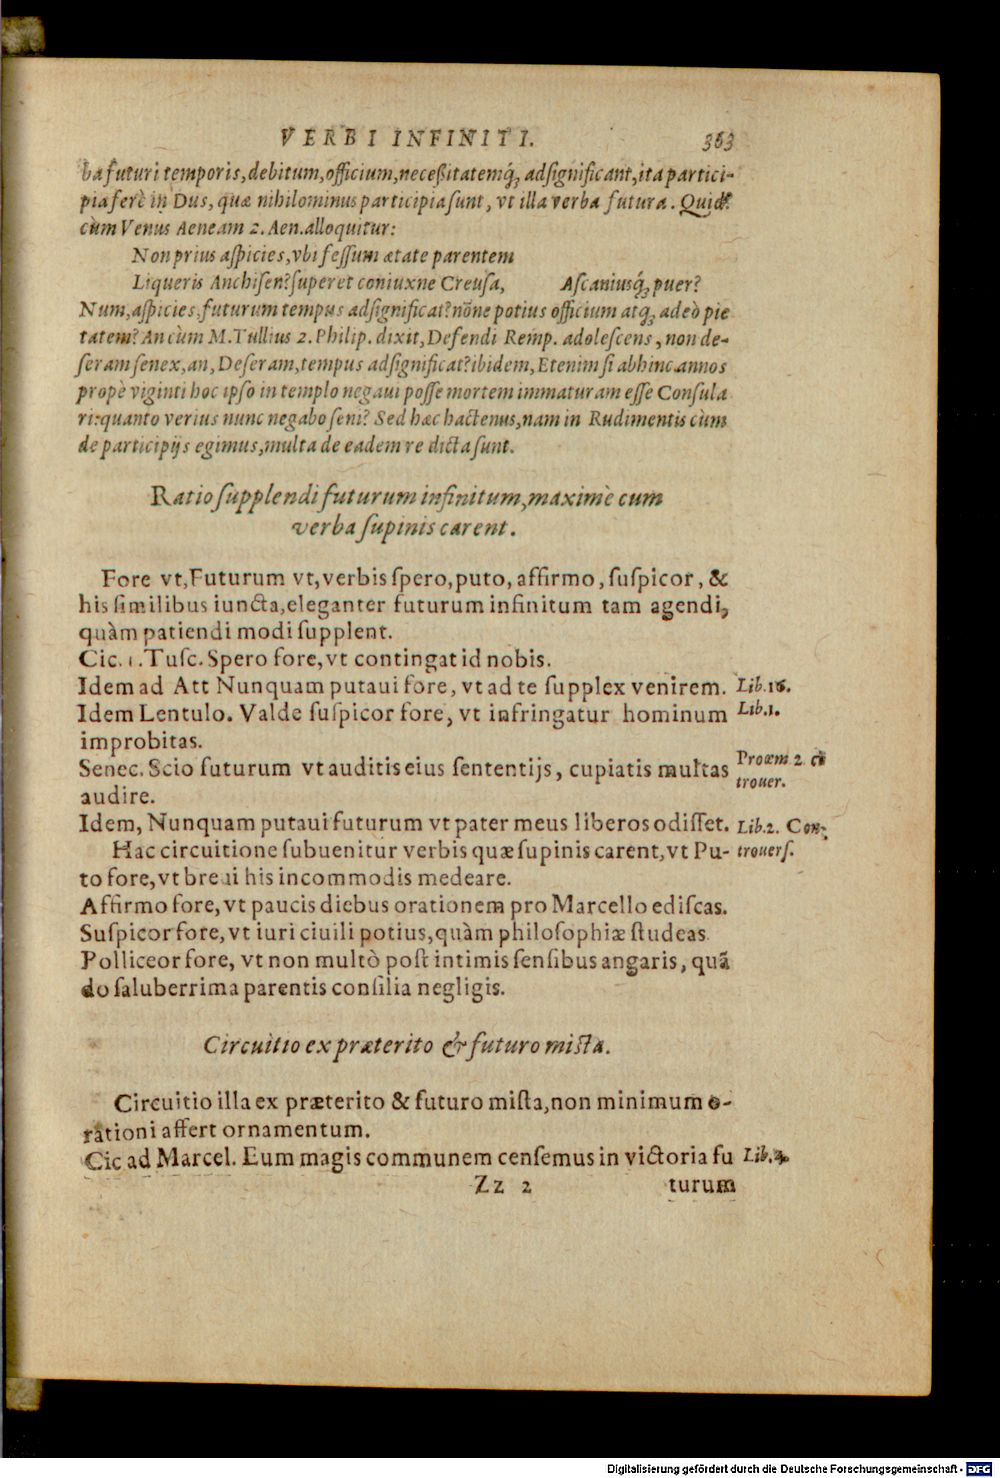 VERBI INFINITI. 363
ba futuri temporis, debitum, officium, neceßitatemq́; adſignificant, ita partici-
pia ferè in Dus, quæ nihilominus participia ſunt, vt illa verba futura. Quid
cùm Venus Aeneam 2. Aen. alloquitur:
Non prius aſpicies, vbi feſſum ætate parentem
Liqueris Anchiſen? ſuperet coniuxne Creuſa, Aſcaniusq́; puer?
Num, aſpicies, futurum tempus adſignificat? nōne potius officium atq́; adeò pie
tatem? An cùm M. Tullius 2. Philip. dixit, Defendi Remp. adoleſcens, non de-
ſeram ſenex, an, Deſeram, tempus adſignificat? ibidem, Etenim ſi abhinc annos
propè viginti hoc ipſo in templo negaui poſſe mortem immaturam eſſe Conſula
ri: quanto verius nunc negabo ſeni? Sed hæc hactenus, nam in Rudimentis cùm
de participijs egimus, multa de eadem re dicta ſunt.
Ratio ſupplendi futurum infinitum, maximè cum
verba ſupinis carent.
Fore vt, Futurum vt, verbis ſpero, puto, affirmo, ſuſpicor, &
his ſimilibus iuncta, eleganter futurum infinitum tam agendi,
quàm patiendi modi ſupplent.
Cic. 1. Tuſc. Spero fore, vt contingat id nobis.
Idem ad Att Nunquam putaui fore, vt ad te ſupplex venirem. Lib. 16.
Idem Lentulo. Valde ſuſpicor fore, vt infringatur hominum Lib. 1.
improbitas.
Senec. Scio futurum vt auditis eius ſententijs, cupiatis multas Proœm 2 cō
audire. trouer.
Idem, Nunquam putaui futurum vt pater meus liberos odiſſet. Lib. 2. Con-
Hac circuitione ſubuenitur verbis quæ ſupinis carent, vt Pu- trouerſ.
to fore, vt breui his incommodis medeare.
Affirmo fore, vt paucis diebus orationem pro Marcello ediſcas.
Suſpicor fore, vt iuri ciuili potius, quàm philoſophiæ ſtudeas.
Polliceor fore, vt non multò poſt intimis ſenſibus angaris, quā
do ſaluberrima parentis conſilia negligis.
Circuitio ex præterito & futuro miſta.
Circuitio illa ex præterito & futuro miſta, non minimum o-
rationi affert ornamentum.
Cic ad Marcel. Eum magis communem cenſemus in victoria fu Lib.
Zz 2 turum
Digitalisierung gefördert durch die Deutsche Forschungsgemeinschaft - DFG